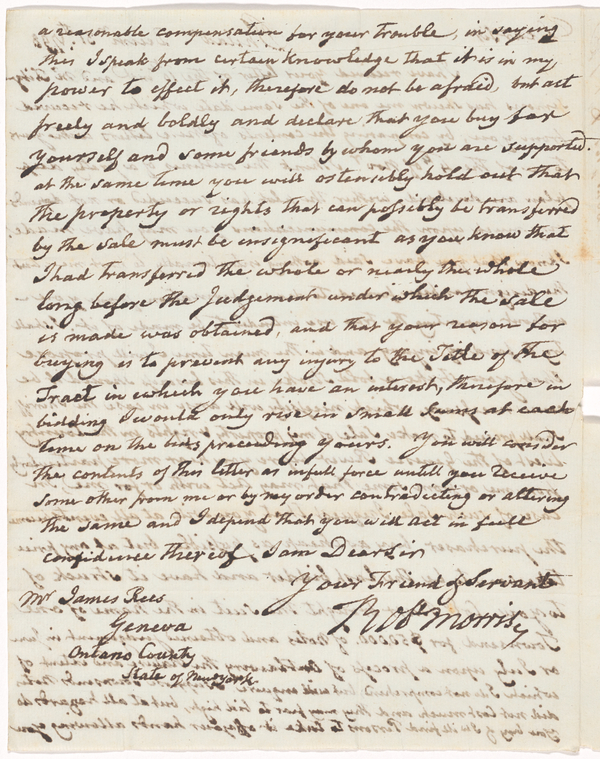 a reasonable compensation for your trouble, in saying
this I speak from certain Knowledge that it is in my
power to effect it, therefore do not be afraid, but act
freely and boldly and declare that you buy for
yourself and some friends by whom you are supported.
at the same time you will ostensibly hold out that
the property or rights that can possibly be transferred
by the sale must be insignificant as you know that
I had transferred the whole or nearly the whole
long before the Judgement under which the sale
is made was obtained, and that your reason for
buying is to prevent any injury to the Title of the
Tract in which you have an interest, therefore in
bidding I would only rise in small sums at each
time on the bids preceeding yours. You will consider
the contents of this letter as in full force untill you receive
some other from me or by my order contradicting or altering
the same and I depend that you will act in full
confidence thereof. I am Dear Sir
Your Friend & Servant
Robt Morris
Mr James Rees
Geneva
Ontario County
State of New york